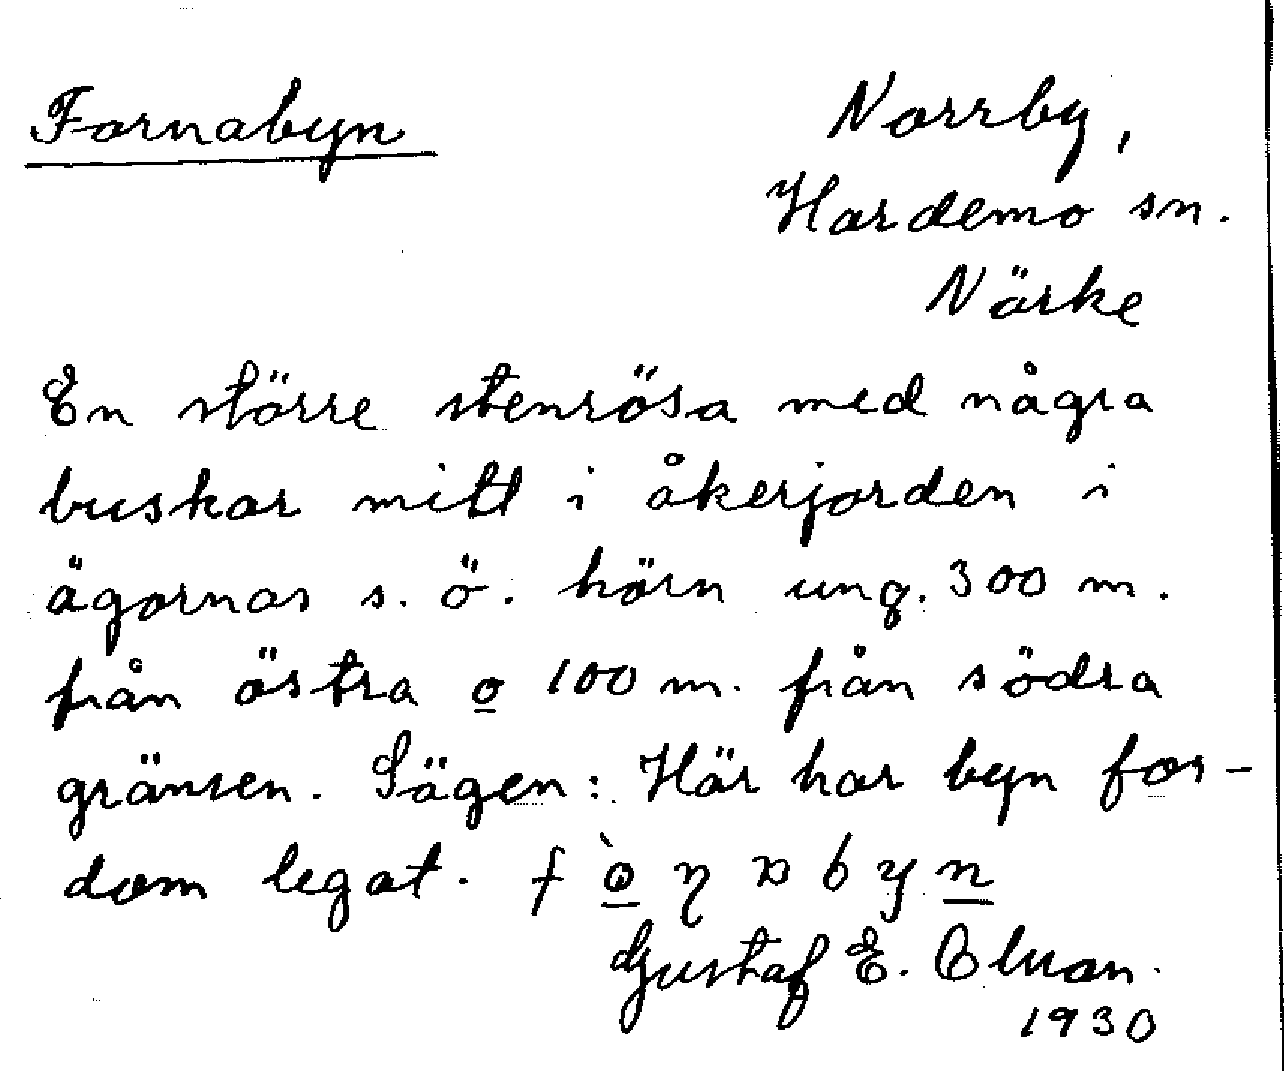 Fornabyn
Norrby,
Hardemo sn.
Närke
En större stenrösa med några
buskar mitt i åkerjorden i
ägornas s. ö. hörn ung. 300 m.
från östra o 100 m. från södra
gränsen. Sägen: Här har byn for-
dom legat.
Gustaf E.
1930